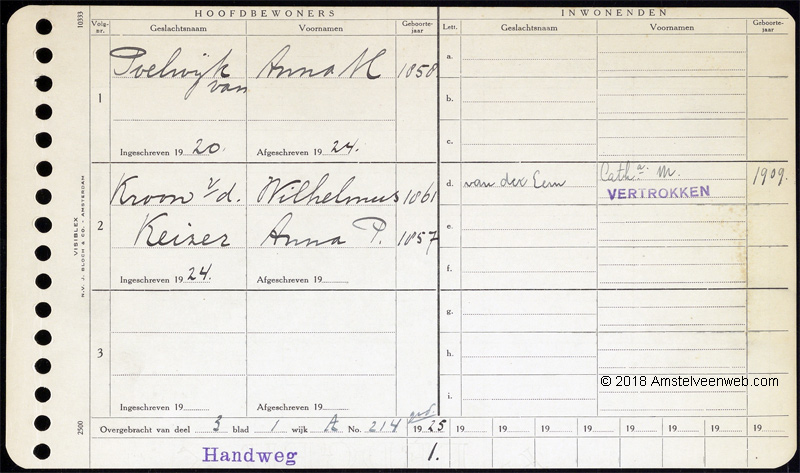 HOOFDBEWONERS INWONENDEN
Volg-nr. Geslachtsnaam Voornamen Geboorte-jaar Lett. Geslachtsnaam Voornamen Geboorte-jaar
1 Poelwijk Anna M 1858 a.
van
b.
c.
Ingeschreven 1920. Afgeschreven 1924.
2 Kroon v/d. Wilhelmus 1861 d. van der Eem Cath.a M. 1909.
VERTROKKEN
Keizer Anna P. 1857 e.
f.
Ingeschreven 1924. Afgeschreven 19
3 g.
h.
i.
Ingeschreven 19 Afgeschreven 19
Overgebracht van deel 3 blad 1 wijk A No. 214 1925 19 19 19 19 19 19 19 19
Handweg 1.
10333
VISIBLEX
N.V. J. BLOCH & CO. - AMSTERDAM
2500
© 2018 Amstelveenweb.com